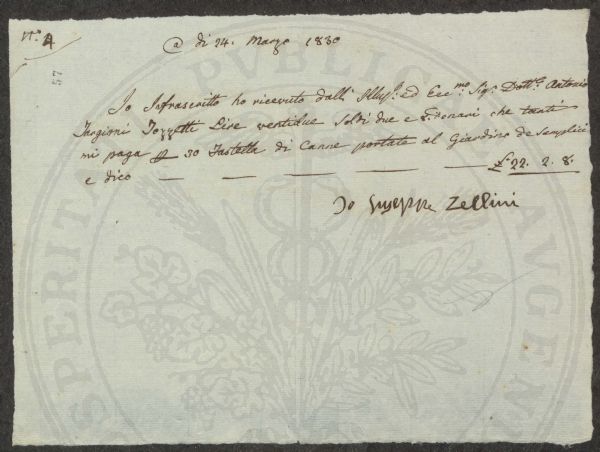 N.º 4
57
@ di 24. Marzo 1830
Io Infrascritto ho ricevuto dall' Illus.º ed Ecc.mo Sig.e Dott.e Antonio
Targioni Tozzetti Lire ventidue Soldi due e 8. Denari che tanti
mi paga 30 Fastella di Canne portate al Giardino de Semplici
e dico — — — — — £ 22. 2. 8.
Io Giuseppe Zellini
PUBLICA
AUGEN
SPERITA